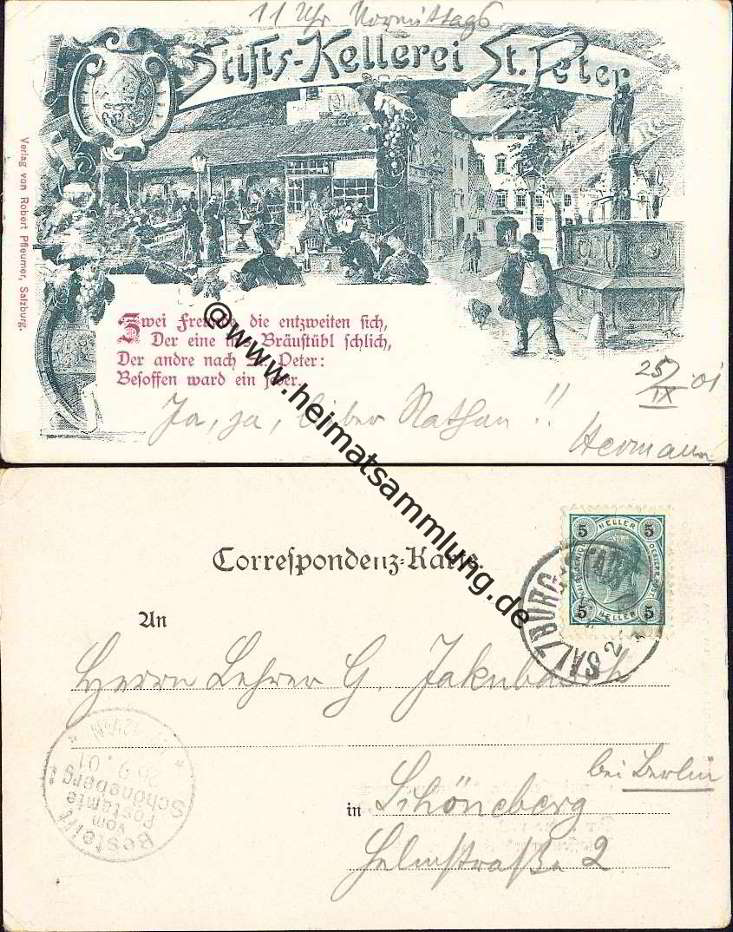 11 Uhr Vormittags
Stifts-Kellerei St. Peter
Verlag von Robert Pfleumer, Salzburg.
Zwei Freunde, die entzweiten sich,
Der eine Bräustübl schlich,
Der andre nach St. Peter:
Besoffen ward ein jeder.
25/IX 01
Ja, ja, lieber Nathan!!
Hermann
@www.heimatsammlung.de
Correspondenz-Karte
5 HELLER 5
5 HELLER 5
SALZBURG
An
Herrn Lehrer G. Jakubasch
bei Berlin
in Schöneberg
Helmstraße 2
Bestellt
vom
Postamte
Schöneberg
26.9.01